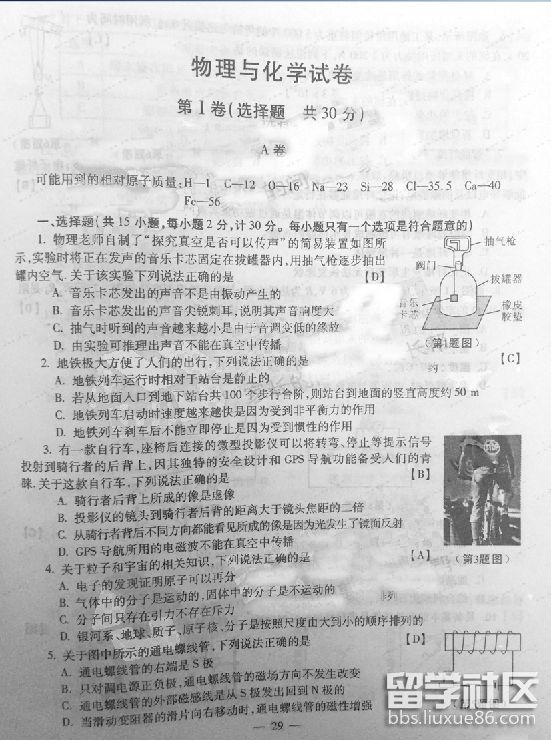 物理与化学试卷
第Ⅰ卷(选择题 共30分)
A卷
可能用到的相对原子质量:H—1 C—12 O—16 Na—23 Si—28 Cl—35.5 Ca—40
Fe—56
一、选择题(共15小题,每小题2分,计30分。每小题只有一个选项是符合题意的)
1. 物理老师自制了“探究真空是否可以传声”的简易装置如图所
示,实验时将正在发声的音乐卡芯固定在拔罐器内,用抽气枪逐步抽出
罐内空气。关于该实验下列说法正确的是 【D】
A. 音乐卡芯发出的声音不是由振动产生的
B. 音乐卡芯发出的声音尖锐刺耳,说明其声音响度大
C. 抽气时听到的声音越来越小是由于音调变低的缘故
D. 由实验可推理出声音不能在真空中传播
抽气枪
阀门
拔罐器
音乐
卡芯
橡皮
胶垫
(第1题图)
2. 地铁极大方便了人们的出行,下列说法正确的是 【C】
A. 地铁列车运行时相对于站台是静止的
B. 若从地面入口到地下站台共100个步行台阶,则站台到地面的竖直高度约50 m
C. 地铁列车启动时速度越来越快是因为受到非平衡力的作用
D. 地铁列车刹车后不能立即停止是因为受到惯性的作用
3. 有一款自行车,座椅后连接的微型投影仪可以将转弯、停止等提示信号
投射到骑行者的后背上,因其独特的安全设计和GPS导航功能备受人们的青
睐。关于这款自行车,下列说法正确的是 【B】
A. 骑行者后背上所成的像是虚像
B. 投影仪的镜头到骑行者后背的距离大于镜头焦距的二倍
C. 从骑行者背后不同方向都能看见所成的像是因为光发生了镜面反射
D. GPS导航所用的电磁波不能在真空中传播
(第3题图)
4. 关于粒子和宇宙的相关知识,下列说法正确的是 【A】
A. 电子的发现证明原子可以再分
B. 气体中的分子是运动的,固体中的分子是不运动的
C. 分子间只存在引力不存在斥力
D. 银河系、地球、质子、原子核、分子是按照尺度由大到小的顺序排列的
5. 关于图中所示的通电螺线管,下列说法正确的是 【D】
A. 通电螺线管的右端是S极
B. 只对调电源正负极,通电螺线管的磁场方向不发生改变
C. 通电螺线管的外部磁感线是从S极发出回到N极的
D. 当滑动变阻器的滑片向右移动时,通电螺线管的磁性增强
— 29 —
留学社区
bbs.liuxue86.com